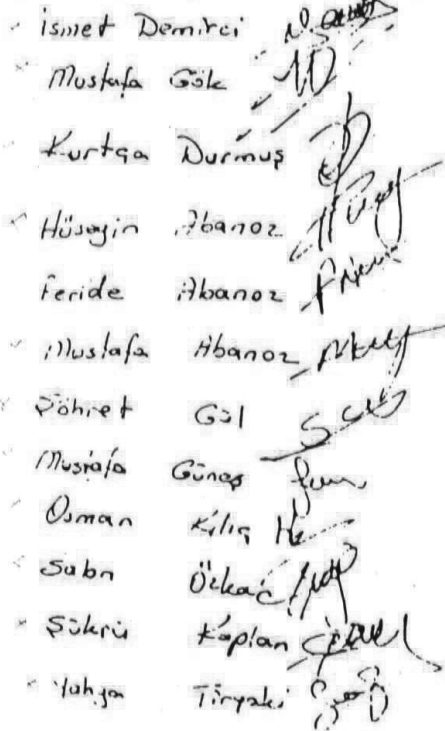 İsmet Demirci
Mustafa Gök
Kurtça Durmuş
Hüseyin Abanoz
Feride Abanoz
Mustafa Abanoz
Şöhret Gül
Mustafa Güneş
Osman Kılıç
Sabri Özkaç
Şükrü Kaplan
Yahya Tiryaki